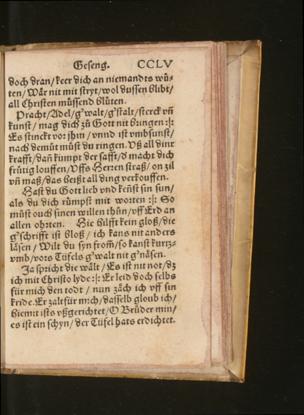 Geseng. CCLV
doch dran/ keer dich an niemandts wü-
ten/ Wär nit mit stryt/ wol dussen blibt/
all Christen müssend blüten.
Pracht/ Adel/ g'walt/ g'stalt/ sterck vñ
kunst/ mag dich zů Gott nit bringen :|:
Es stinckt vor jhm/ vnnd ist vmbsunst/
nach demůt můst du ringen. Vß all dinr
krafft/ dañ kumpt der safft/ d macht dich
frütig louffen/ Vffs Herren straß/ on zil
vñ maß/ das heißt all ding verkouffen.
Hast du Gott lieb vnd keñst sin sun/
als du dich rümpst mit worten :|: So
můst ouch sinen willen thůn/ vff Erd an
allen ohrten. Hie hilfft kein gloß/ die
g'schrifft ist bloß/ ich kans nit anders
läsen/ Wilt du syn from/ so kanst kurtz-
vmb/ vors Tüfels g'walt nit g'näsen.
Ja spricht die wält/ Es ist nit not/ dz
ich mit Christo lyde :|: Er leid doch selbs
für mich den todt/ nun zäch ich vff sin
kride. Er zalt für mich/ dasselb gloub ich/
hiemit ists vßgerichtet/ O Brüder min/
es ist ein schyn/ der Tüfel hats erdichtet.